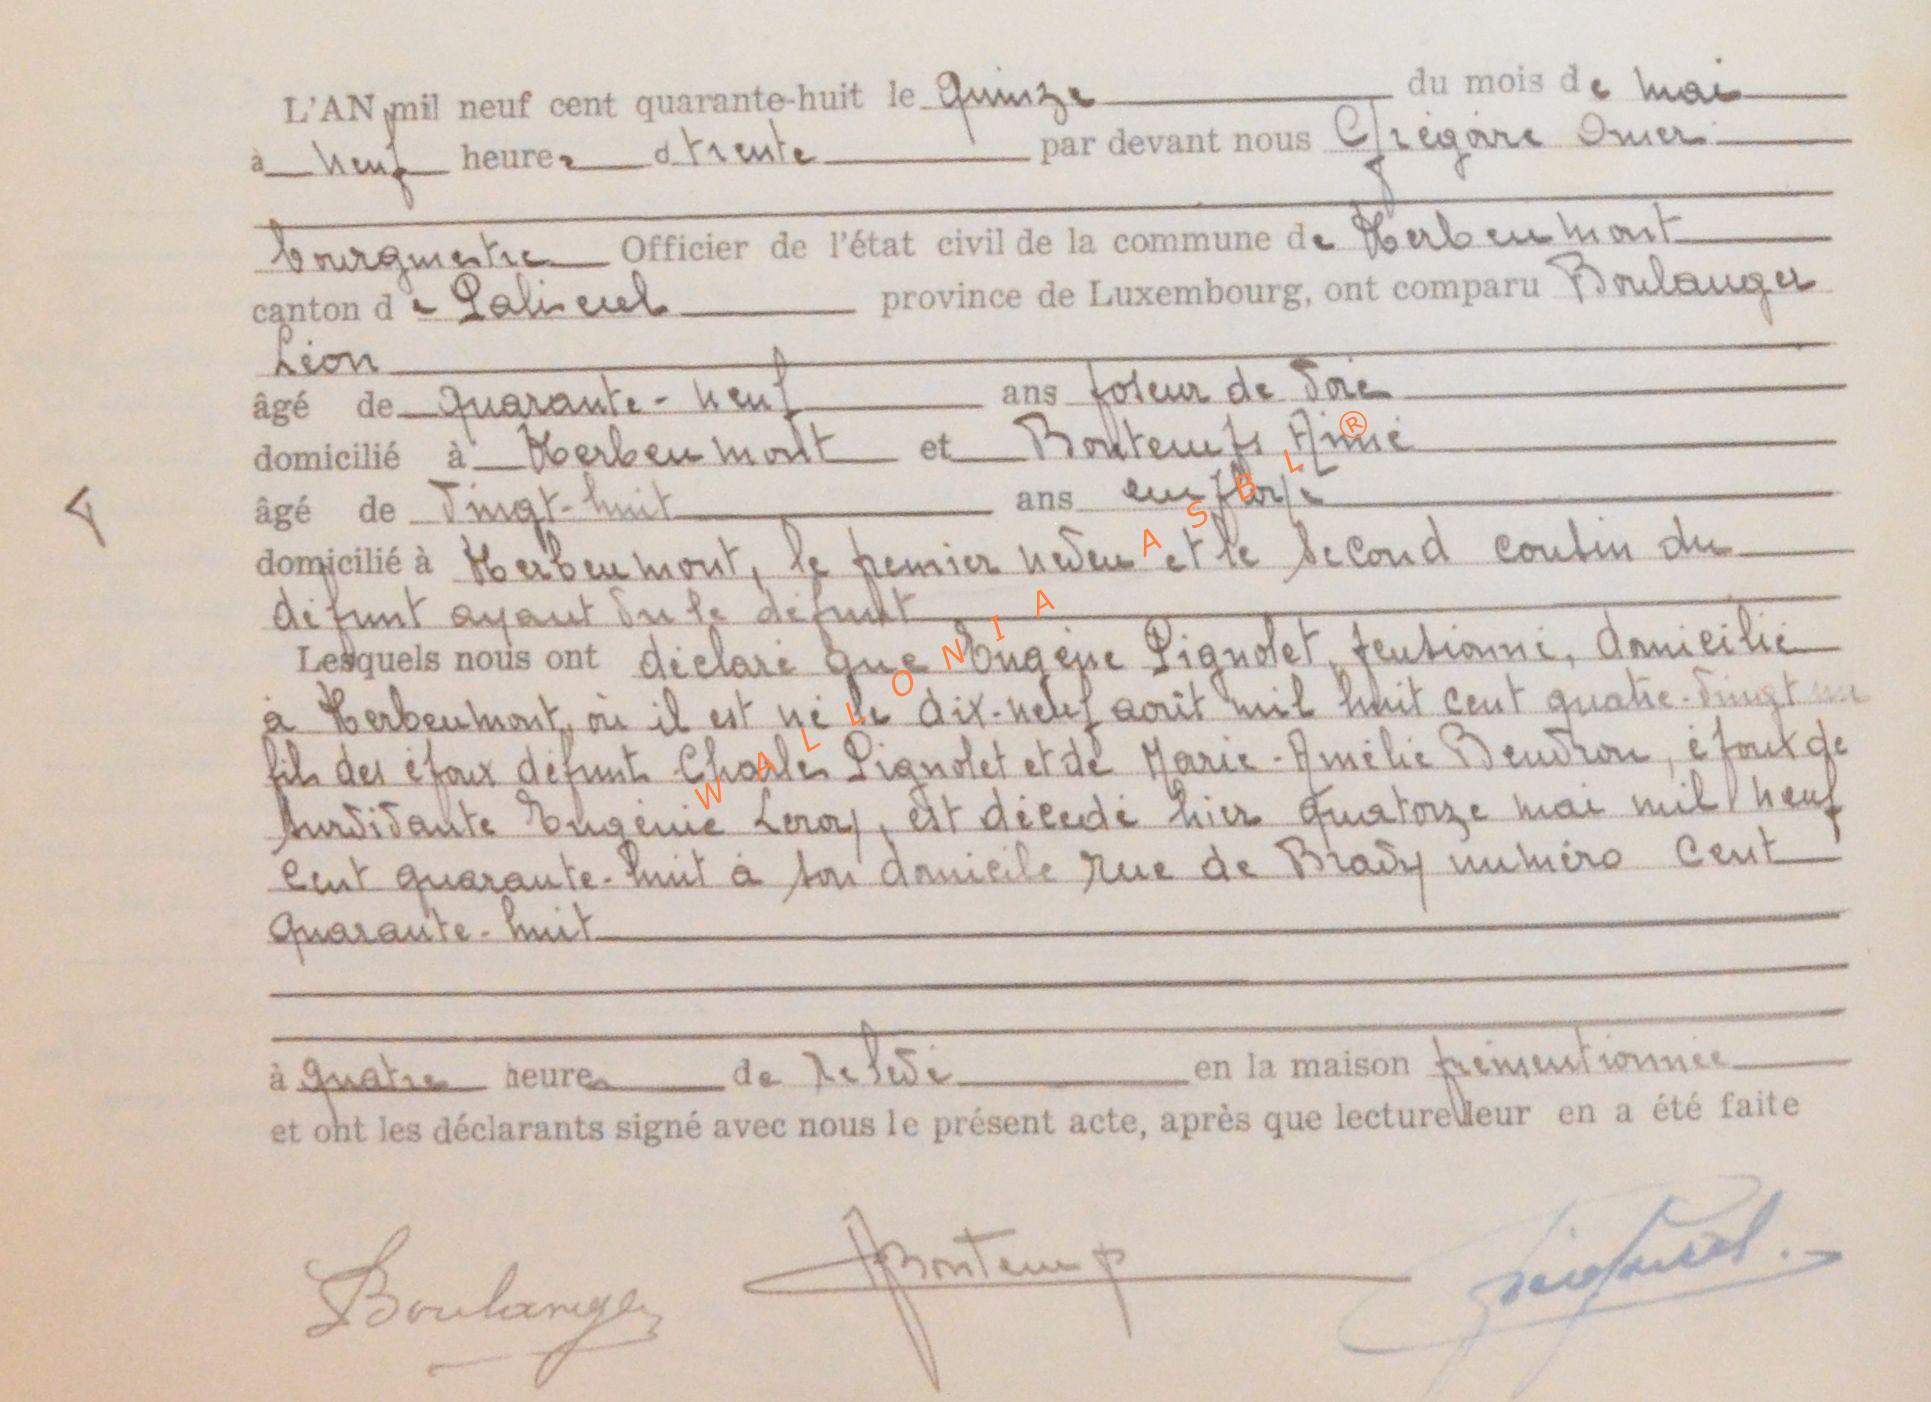 L'AN mil neuf cent quarante-huit le quinze du mois de mai
à neuf heures trente par devant nous Grégoire Omer
bourgmestre Officier de l'état civil de la commune de Herbeumont
canton de Paliseul province de Luxembourg, ont comparu Boulanger
Léon
âgé de quarante-neuf ans poseur de voie
domicilié à Herbeumont et Bontemps Aimé
âgé de vingt-huit ans employé
domicilié à Herbeumont, le premier neveu et le second cousin du
défunt ayant vu le défunt
Lesquels nous ont déclaré que Eugène Pignolet, pensionné, domicilié
à Herbeumont, où il est né le dix-neuf août mil huit cent quatre-vingt un
fils des époux défunts Charles Pignolet et de Marie-Amélie Beudron, époux de
survivante Eugénie Leroy, est décédé hier quatorze mai mil neuf
cent quarante-huit à son domicile rue de Bravy numéro cent
quarante-huit
à quatre heures de relevé en la maison prémentionnée
et ont les déclarants signé avec nous le présent acte, après que lecture leur en a été faite
Boulanger ABontemp
WALLONIA ASBL®
4